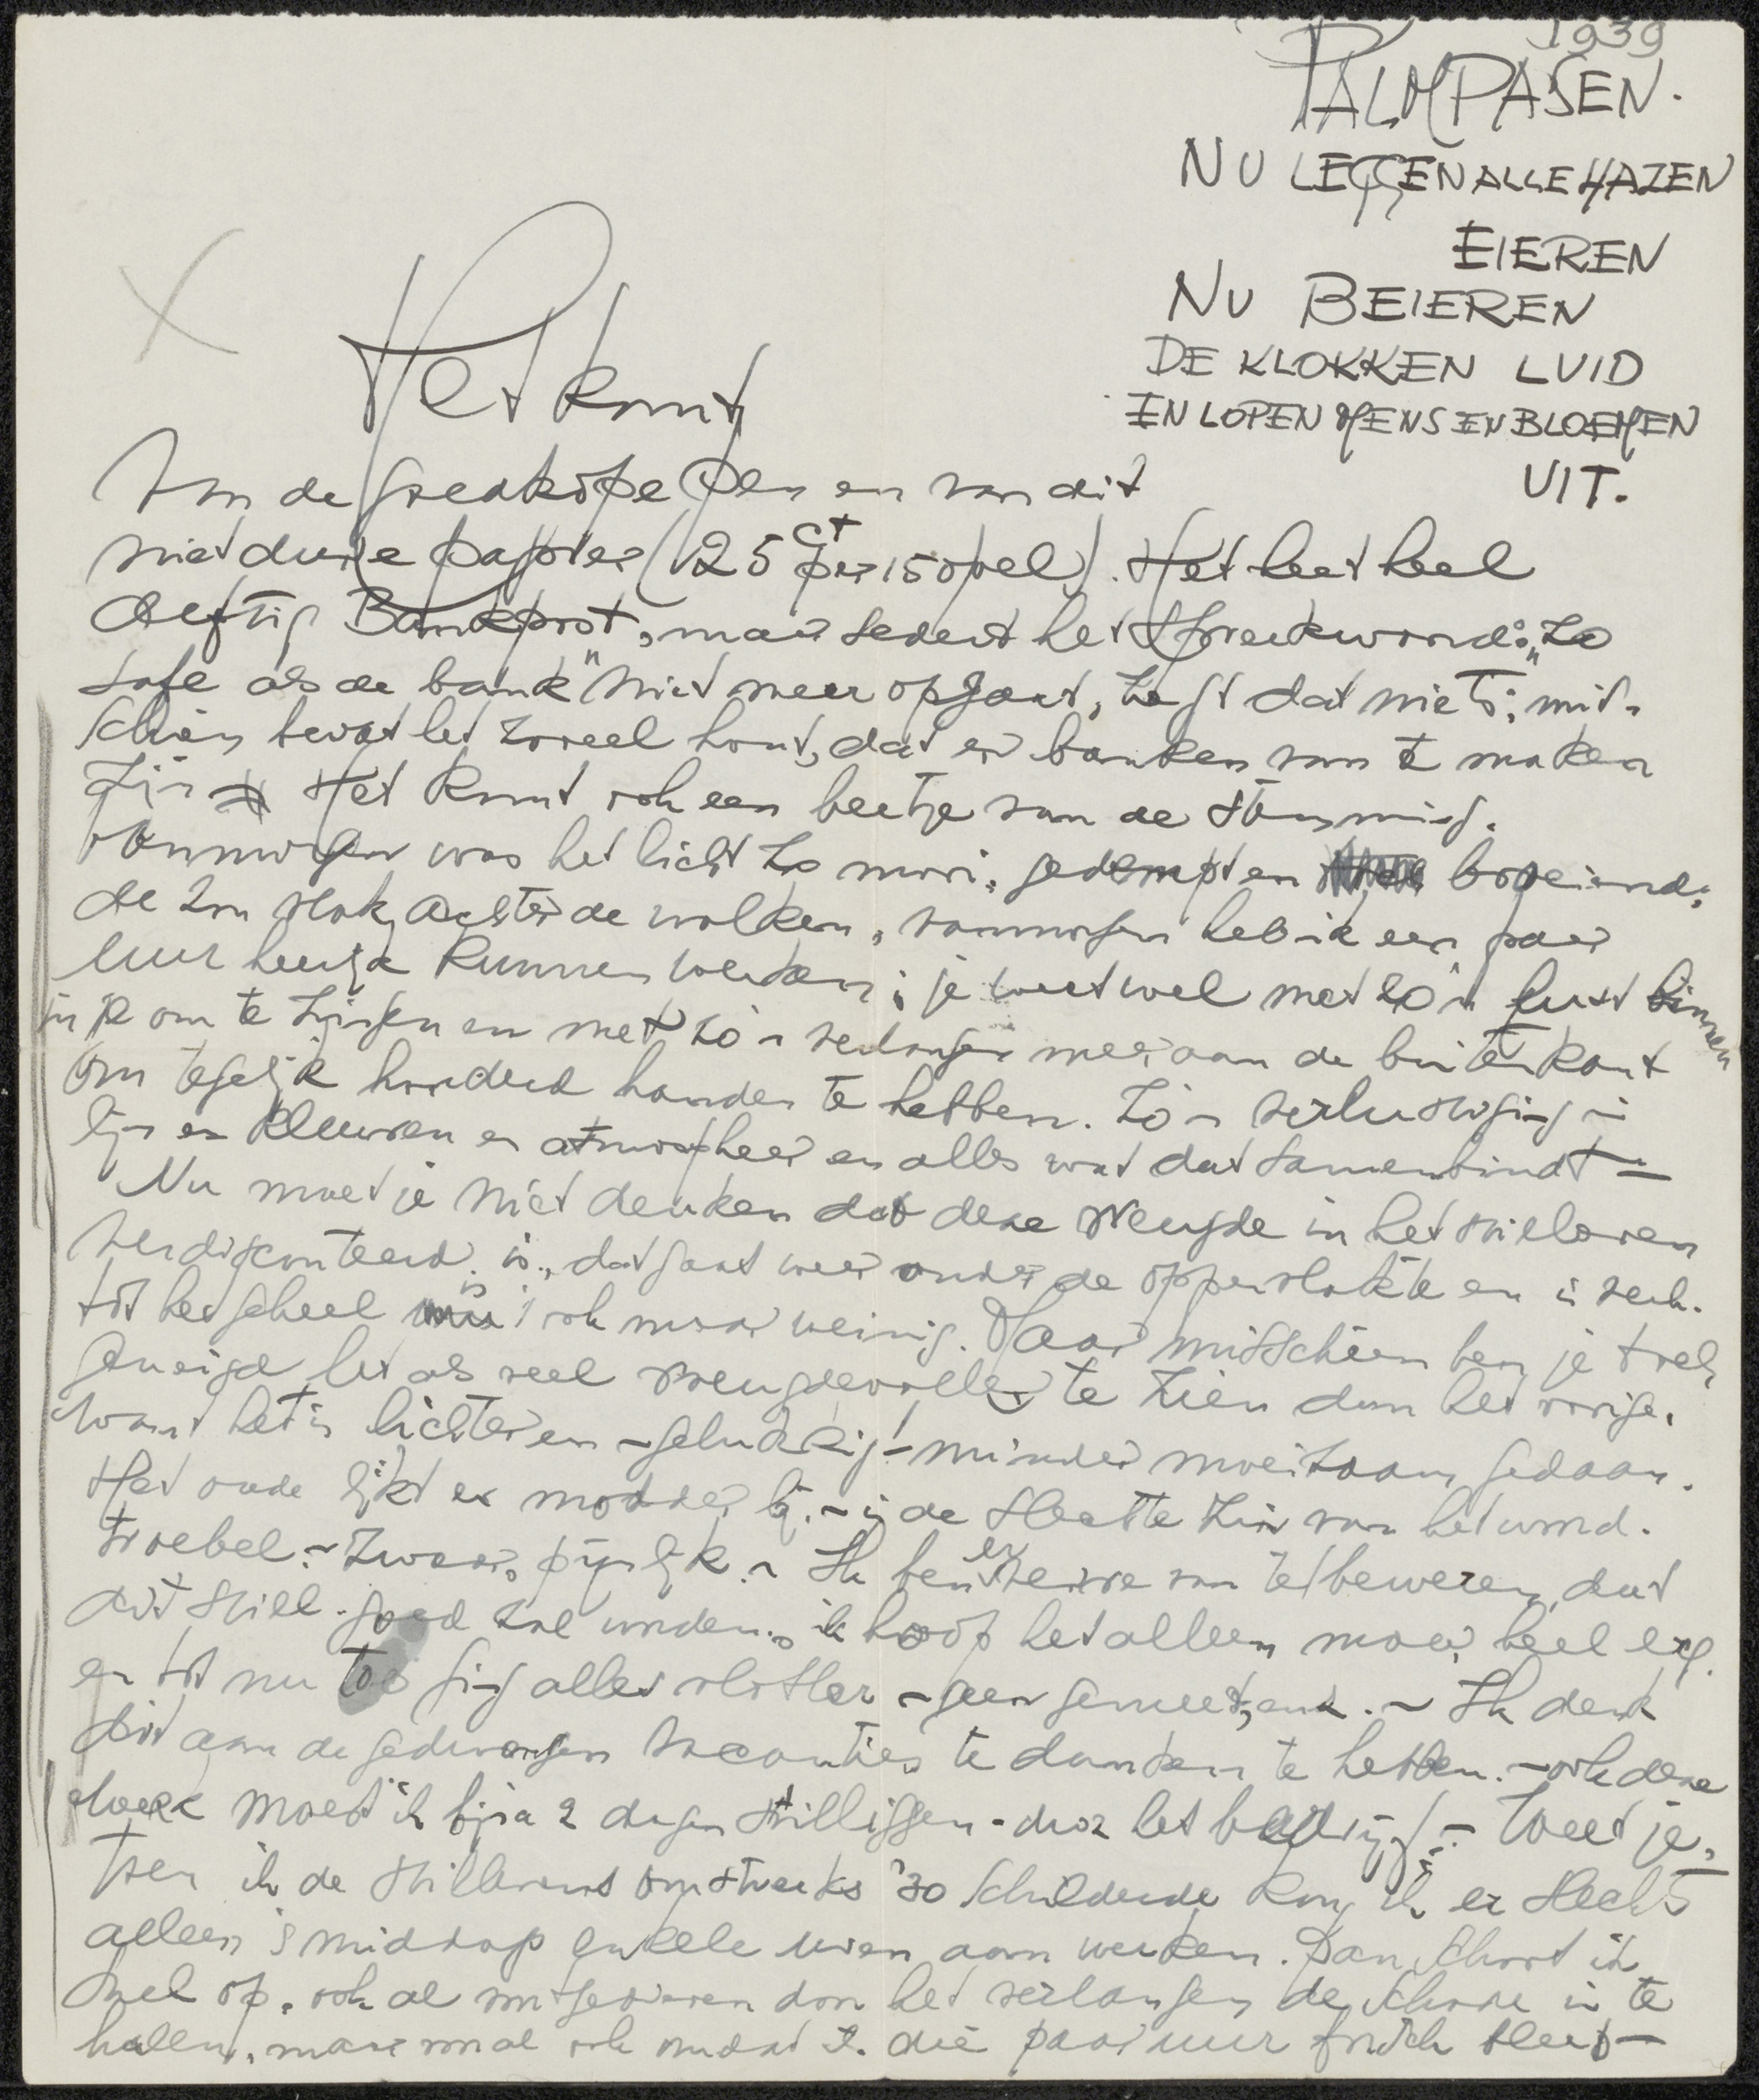 1939
PALMPASEN.
NU LEGGEN ALLE HAZEN
EIEREN
NU BEIEREN
DE KLOKKEN LUID
EN LOPEN MENS EN BLOEMEN
UIT.
Het komt
Van de goedkope pen en van dit
niet dure papier (25 ct per 150 vel). Het heet heel
deftig Bankpost, maar sedert het spreekwoord: "zo
safe als de bank" niet meer opgaat, zegt dat niets; mis-
schien bevat het zoveel hout, dat er banken van te maken
zijn Het komt ook een beetje van de stemming.
Vanmorgen was het licht zo mooi, gedempt en boeiend;
de zon stak achter de wolken, vanmorgen heb ik een paar
uur heerlijk kunnen werken; je weet wel met zo'n lust binnen
in je om te zingen en met zo'n verlangen meer aan de buitenkant
om tegelijk honderd handen te hebben. Zo'n verlustiging in
lijn en kleuren en atmospheer en alles wat dat samenbindt —
Nu moet je niet denken dat deze vreugde in het stilleven
verdisconteerd is, dat gaat weer onder de oppervlakte en is
tot het geheel is ook maar weinig. Maar misschien ben je toch
geneigd het als veel vreugdevoller te zien dan het vorige,
want het is lichter en – gelukkig! – minder moeizaam gedaan.
Het oude lijkt er modder bij, – in de slechte zin van het woord.
troebel – zwaar, pijnlijk. – Ik ben er verre van te beweren, dat
dit still. goed zal worden, ik hoop het alleen maar heel erg.
en tot nu toe ging alles vlotter – geen gemeet, enz. – Ik denk
dit aan de gedwongen vacanties te danken te hebben. – ook deze
week moest ik bijna 2 dagen stilliggen – door het – Weet je,
toen ik de stillevens omstreeks '30 schilderde kon ik er slechts
alleen 's middags enkele uren aan werken. Dan schoot ik
wel op, ook al aangedreven door het verlangen de schade in te
halen, maar vooral ook omdat ik die paar uur frisch bleef —